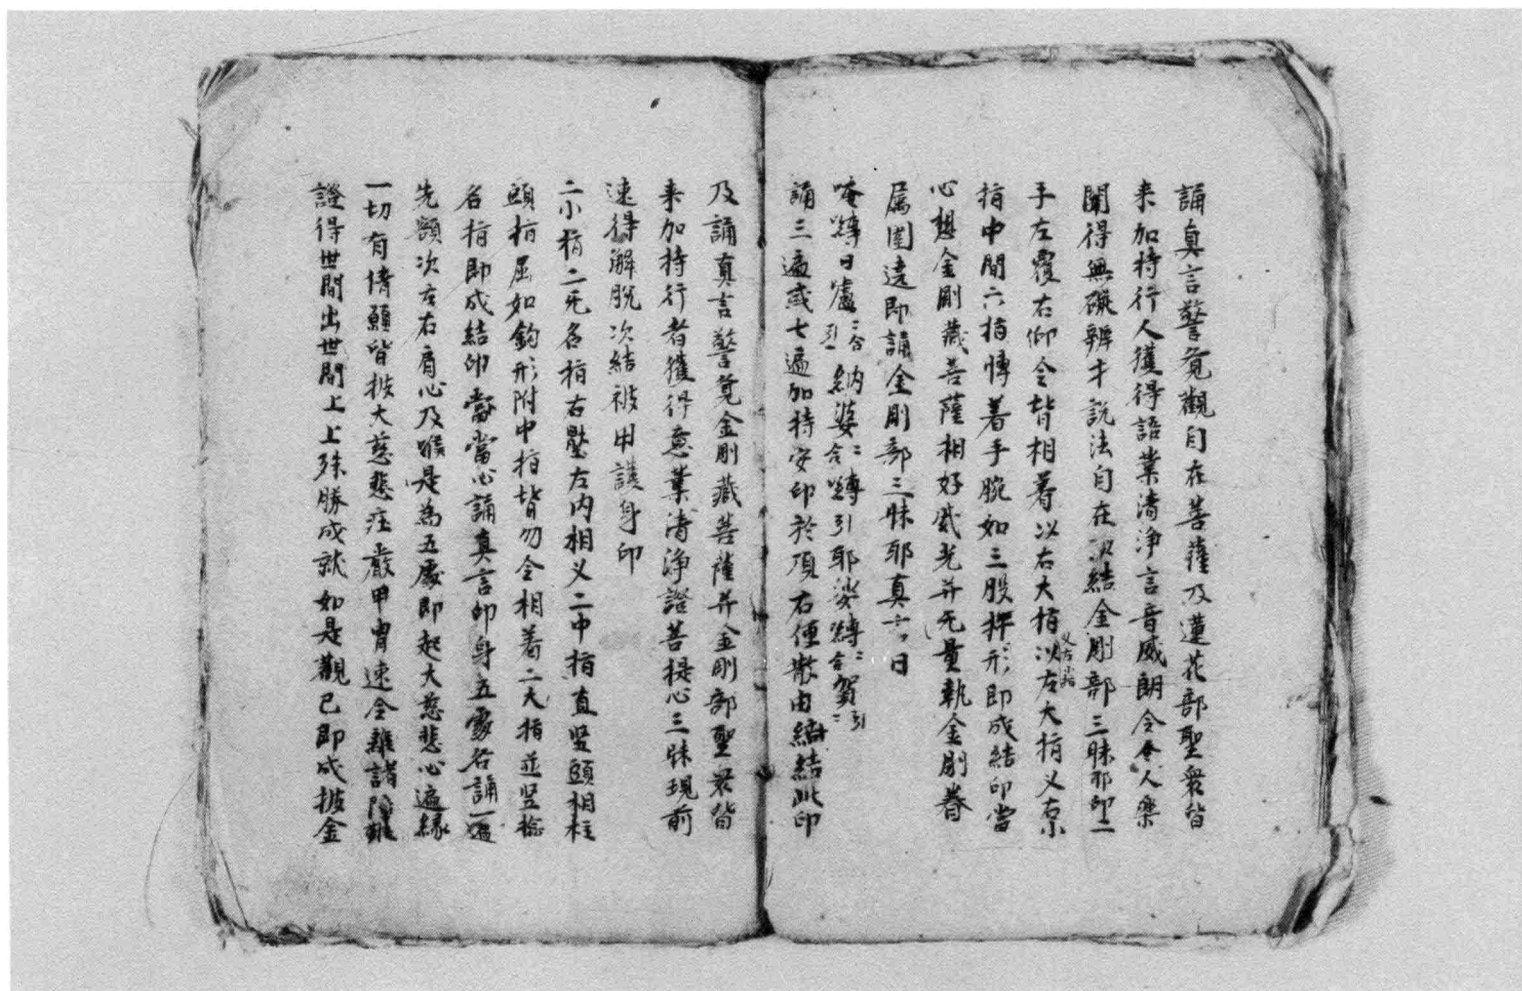 誦真言警覺觀自在菩薩及蓮花部聖衆皆
来加持行人獲得語業清淨言音威朗令令人樂
聞得無礙辯才説法自在次結金剛部三昧耶印二
手左覆右仰令背相着以右大指以左大指叉右小
叉右小指
指中間六指愽着手腕如三股杵形即成結印當
心想金剛藏菩薩相好威光并无量執金剛眷
属圍遶即誦金剛部三昧耶真言曰
唵嚩日嚧二合引納婆二合嚩引耶娑嚩二合賀引二
誦三遍或七遍加持安印於頂右便散由結此印
及誦真言警覺金剛藏菩薩并金剛部聖衆皆
来加持行者獲得意業清淨證菩提心三昧現前
速得解脫次結被甲護身印
二小指二无名指右壓左内相叉二中指直竪頭相柱
頭指屈如鈎形附中指背勿令相着二大指並竪捻
名指即成結印當心誦真言印身五處各誦一遍
先額次左右肩心及喉是為五處即起大慈悲心遍緣
一切有情願皆披大慈悲庄嚴甲冑速令離諸障難
證得世間出世間上上殊勝成就如是觀已即成披金